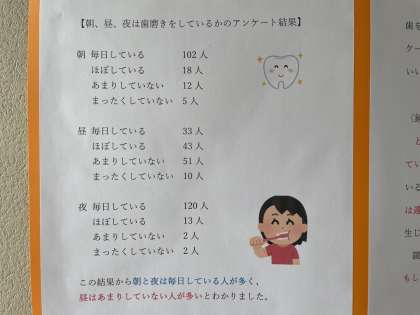 【朝、昼、夜は歯磨きをしているかのアンケート結果】
朝 毎日している 102 人
ほぼしている 18 人
あまりしていない 12 人
まったくしていない 5 人
昼 毎日している 33 人
ほぼしている 43 人
あまりしていない 51 人
まったくしていない 10 人
夜 毎日している 120 人
ほぼしている 13 人
あまりしていない 2 人
まったくしていない 2 人
この結果から朝と夜は毎日している人が多く、
昼はあまりしていない人が多いとわかりました。
歯を
クー
いい
と
てい
いる
は運
生じ
もし